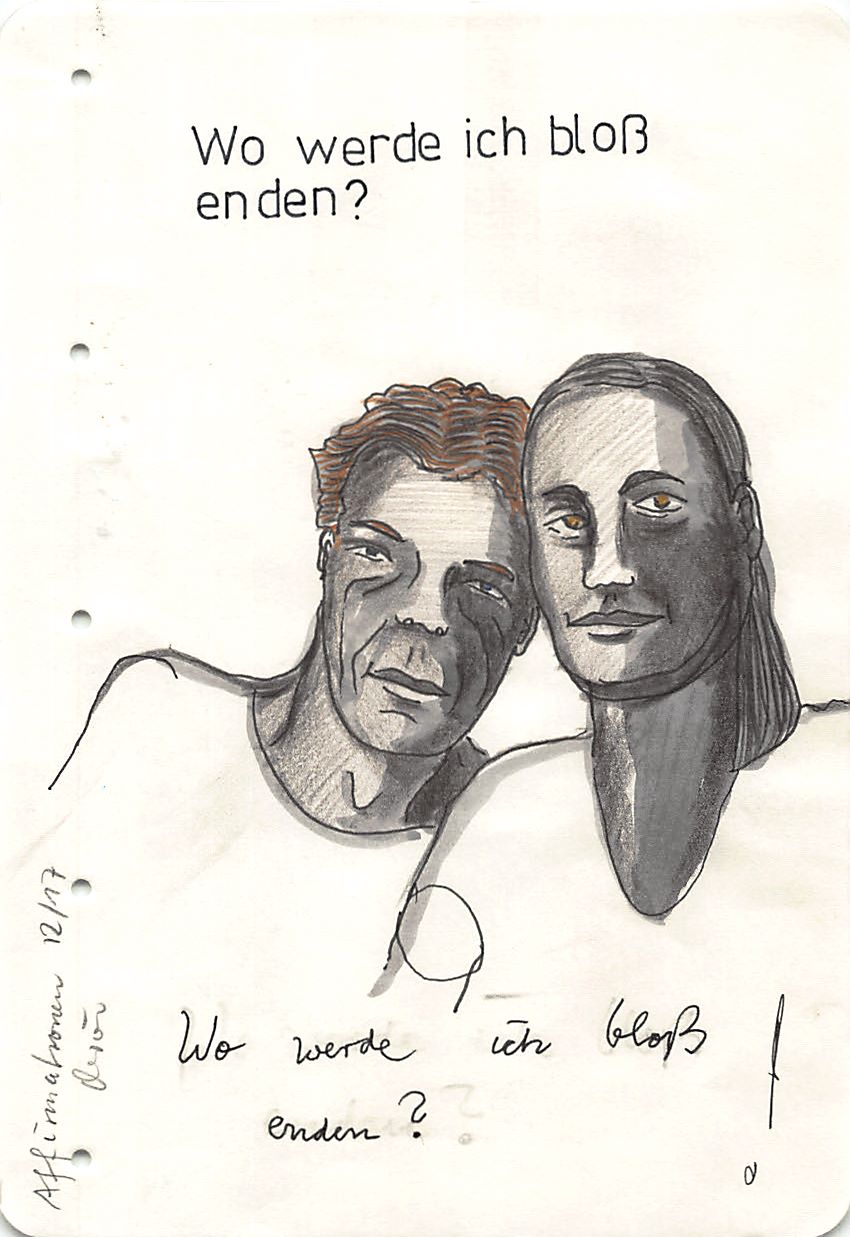 Wo werde ich bloß
enden?
Wo werde ich bloß
enden? !
Affirmationen 12/17